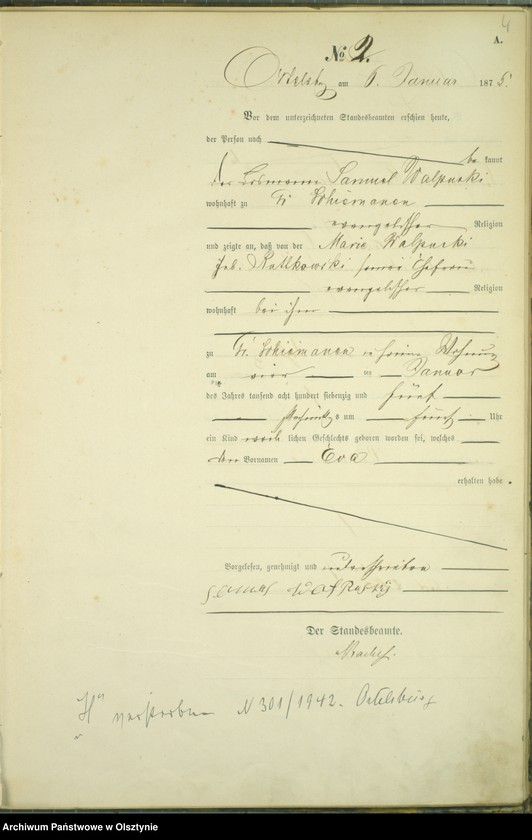 4
A.
№ 2.
Ortelsbg am 6. Januar 1875.
Vor dem unterzeichneten Standesbeamten erschien heute,
der Person nach
be kannt
der Losmann Samuel Walpuski
wohnhaft zu Kl Schiemanen
evangelischer Religion
und zeigte an, daß von der Marie Walpuski
geb. Rattkowski seiner Ehefrau
evangelischer Religion
wohnhaft bei ihm
zu Kl. Schiemanen in seiner Wohnung
am vier ten Januar
des Jahres tausend acht hundert siebenzig und fünf
Nachmittags um fünf Uhr
ein Kind weib lichen Geschlechts geboren worden sei, welches
den Vornamen Eva
erhalten habe.
Vorgelesen, genehmigt und unterschrieben
Der Standesbeamte.
verstorben N 301/1942. Ortelsburg
Archiwum Państwowe w Olsztynie